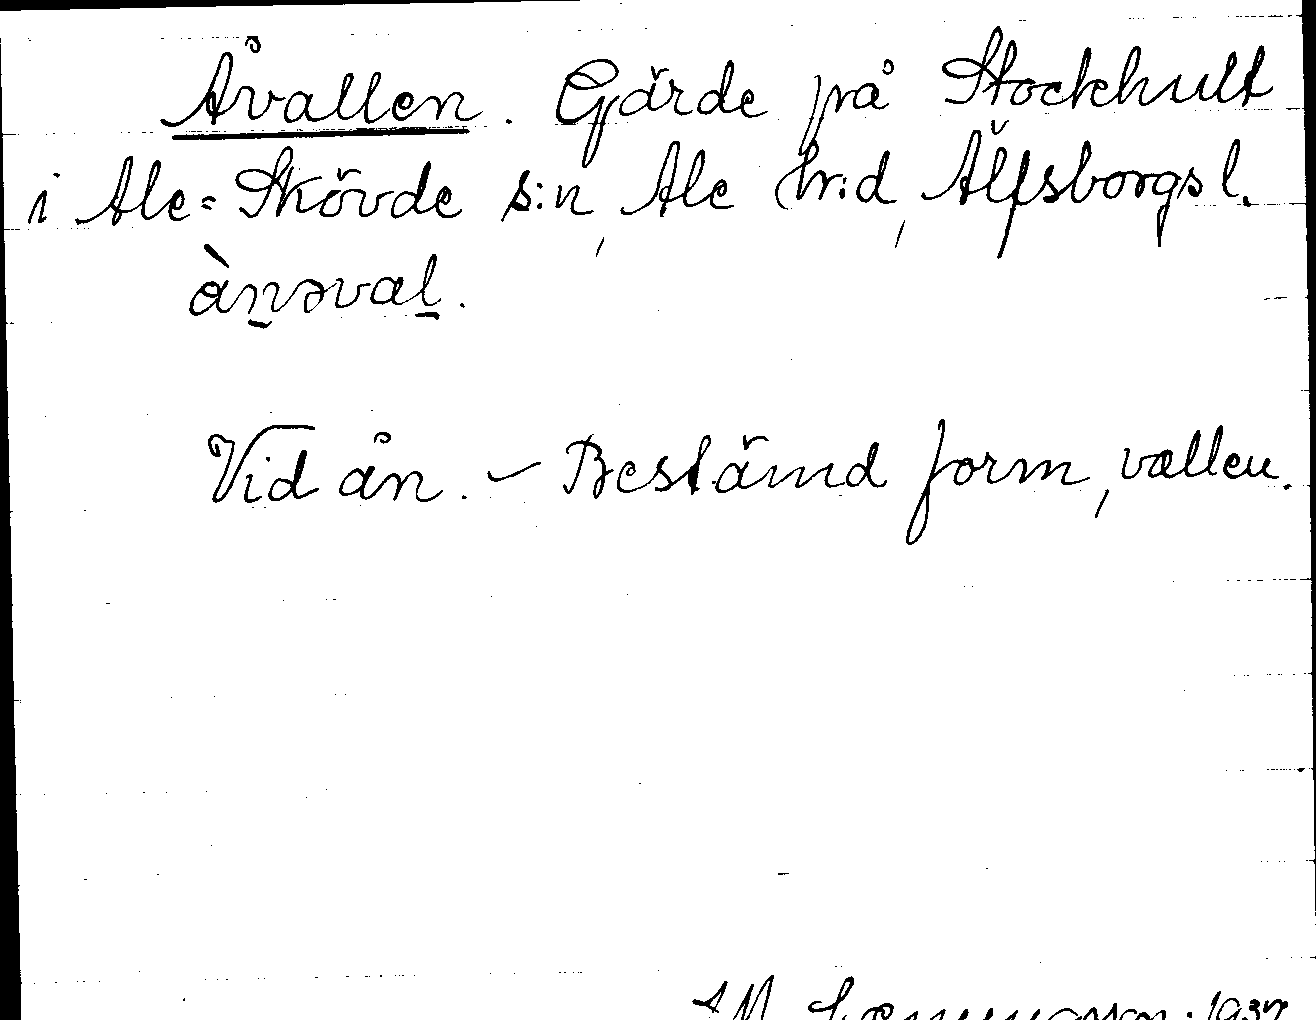 Åvallen. Gärde på Stockhult
i Ale-Skövde s:n, Ale hr:d, Älfsborgs l.
ànəval.
Vid ån. – Bestämd form, vallen.